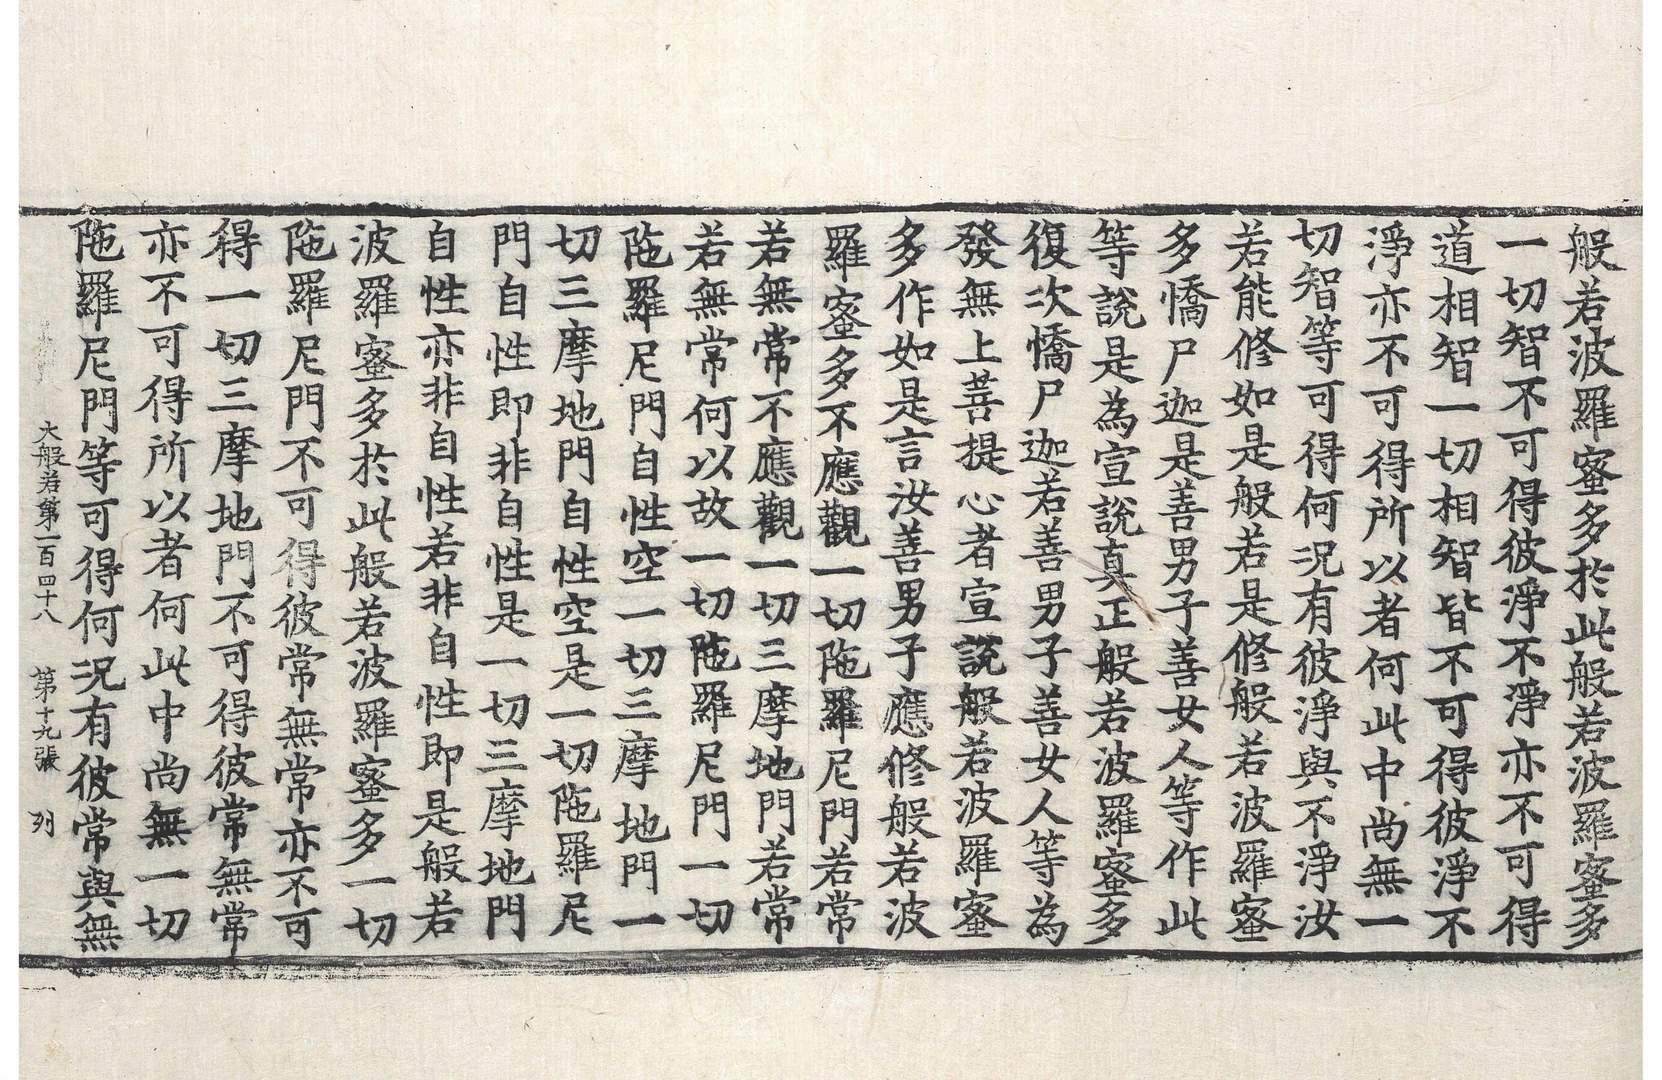 般若波羅蜜多於此般若波羅蜜多
一切智不可得彼淨不淨亦不可得
道相智一切相智皆不可得彼淨不
淨亦不可得所以者何此中尚無一
切智等可得何況有彼淨與不淨汝
若能修如是般若是修般若波羅蜜
多憍尸迦是善男子善女人等作此
等說是為宣說真正般若波羅蜜多
復次憍尸迦若善男子善女人等為
發無上菩提心者宣說般若波羅蜜
多作如是言汝善男子應修般若波
羅蜜多不應觀一切陁羅尼門若常
若無常不應觀一切三摩地門若常
若無常何以故一切陁羅尼門一切
陁羅尼門自性空一切三摩地門一
切三摩地門自性空是一切陁羅尼
門自性即非自性是一切三摩地門
自性亦非自性若非自性即是般若
波羅蜜多於此般若波羅蜜多一切
陁羅尼門不可得彼常無常亦不可
得一切三摩地門不可得彼常無常
亦不可得所以者何此中尚無一切
陁羅尼門等可得何況有彼常與無
大般若第一百四十八 第十九張 列